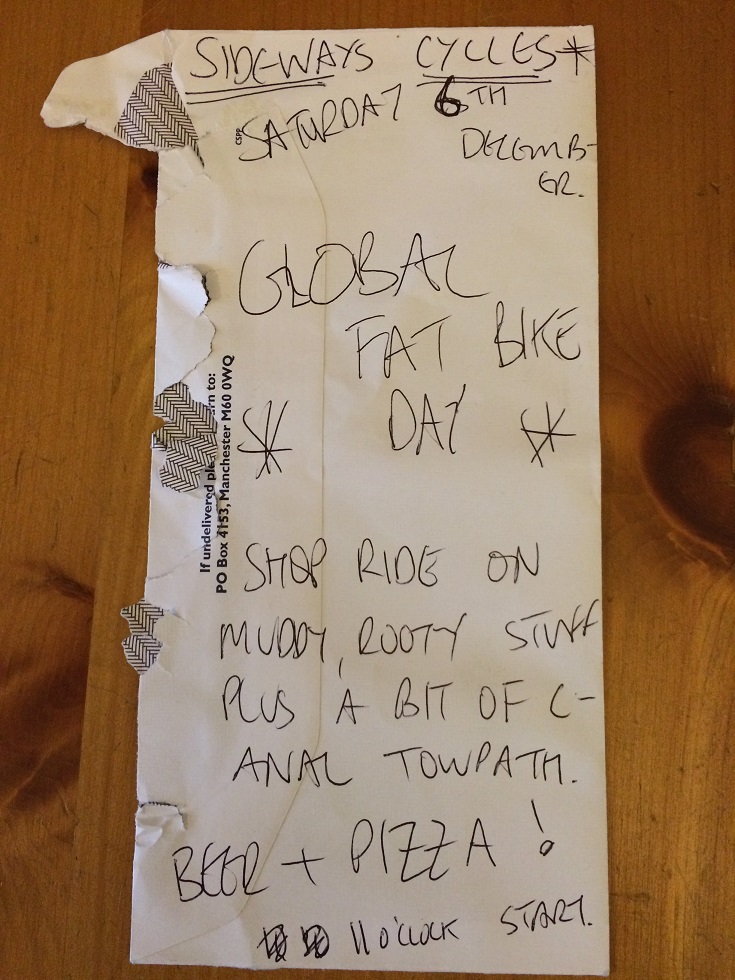 SIDEWAYS CYCLES*
SATURDAY 6TH
DECEMB-
ER.
GLOBAL
FAT BIKE
* DAY *
SHOP RIDE ON
MUDDY, ROOTY STUFF
PLUS A BIT OF C-
ANAL TOWPATH.
BEER + PIZZA!
11 O'CLOCK START.
CSPP
If undelivered
PO Box 4153, Manchester M60 0WQ